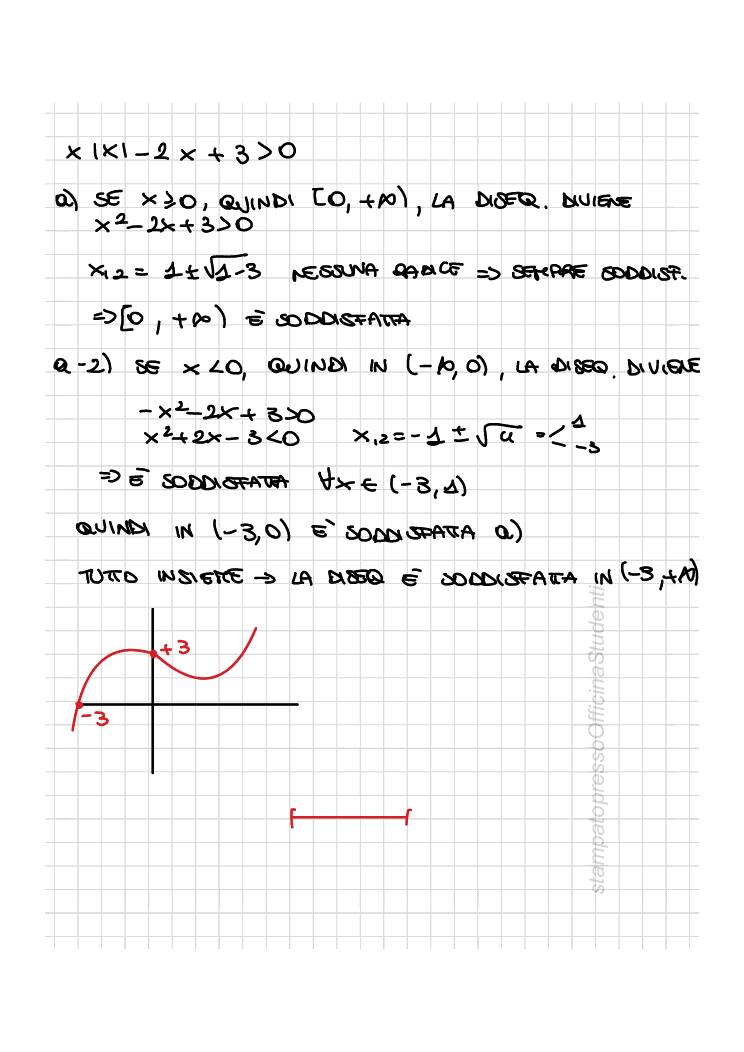 x |x| - 2x + 3 > 0
a) SE x ≥ 0, QUINDI [0, +∞), LA DISEQ. DIVIENE
x² - 2x + 3 > 0
x₁,₂ = 1 ± √1-3 NESSUNA RADICE => SEMPRE SODDISF.
=> [0, +∞) È SODDISFATTA
a-2) SE x < 0, QUINDI IN (-∞, 0), LA DISEQ. DIVIENE
-x² - 2x + 3 > 0
x² + 2x - 3 < 0 x₁,₂ = -1 ± √4 = < 1 -3
=> È SODDISFATTA ∀x ∈ (-3, 1)
QUINDI IN (-3, 0) È SODDISFATTA a)
TUTTO INSIEME → LA DISEQ È SODDISFATTA IN (-3, +∞)
+3
-3
stampatopressoOfficinaStudenti